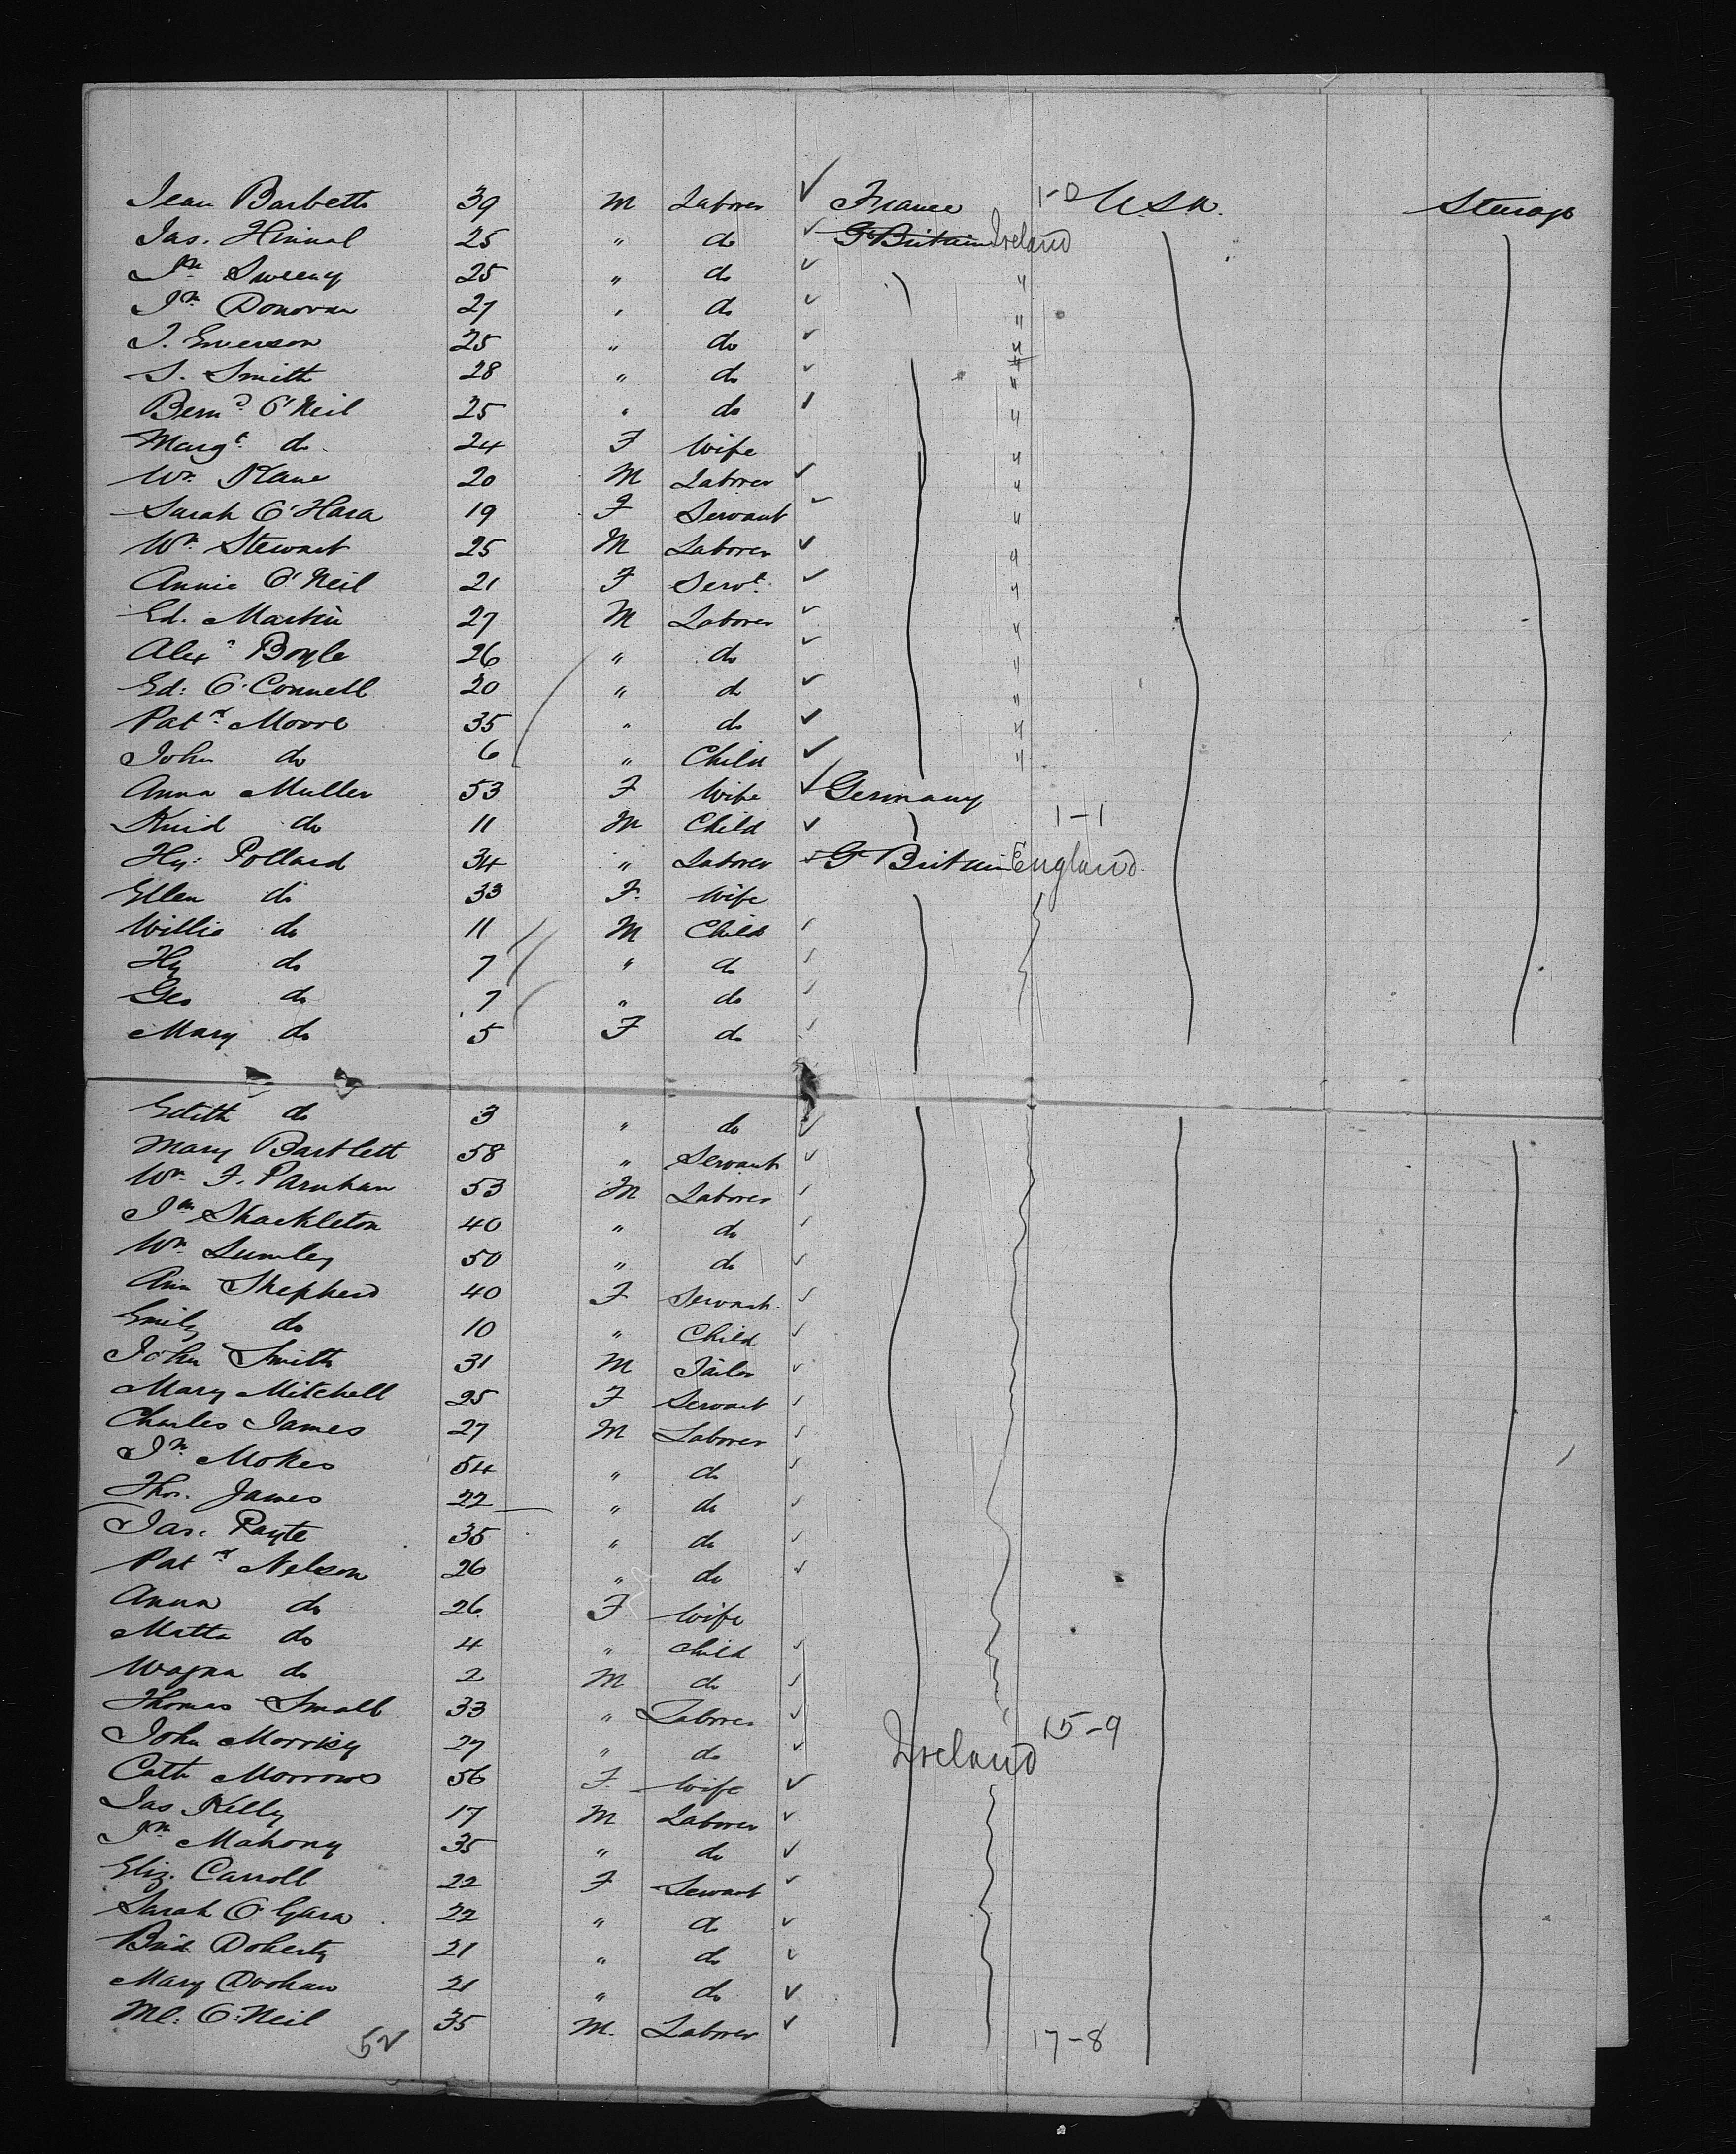 Jean Barbett 39 M Laborer ✓ France 1-0 U.S.A. Steerage
Jas. Hinnal 25 " do ✓ Gt Britain Ireland
Jn Sweeny 25 " do ✓ "
Jn Donovan 27 " do ✓ "
J. Emerson 25 " do ✓ "
S. Smith 28 " do ✓ "
Bernd O'Neil 25 " do ✓ "
Margt do 24 F Wife "
Wm Kane 20 M Laborer ✓ "
Sarah O'Hara 19 F Servant ✓ "
Wm Stewart 25 M Laborer ✓ "
Annie O'Neil 21 F Servt ✓ "
Ed. Martin 27 M Laborer ✓ "
Alexr Boyle 26 " do ✓ "
Ed: O'Connell 20 " do ✓ "
Patk Moore 35 " do ✓ "
John do 6 " Child ✓ "
Anna Muller 53 F Wife ✓ Germany
do 11 M Child ✓ 1-1
Hy: Pollard 34 " Laborer ✓ Gt Britain England
Ellen do 33 F. Wife
Willie do 11 M Child ✓
Hy do 7 " do ✓
Geo do 7 " do ✓
Mary do 5 F do ✓
Edith do 3 " do ✓
Mary Bartlett 58 " Servant ✓
Wm F. Parnham 53 M Laborer ✓
Jn Shackleton 40 " do ✓
Wm Lumley 50 " do ✓
Ann Shepherd 40 F Servant ✓
Emily do 10 " Child ✓
John Smith 31 M Tailor ✓
Mary Mitchell 25 F Servant ✓
Charles James 27 M Laborer ✓
Jn Mokes 54 " do ✓
Thos. James 22 " do ✓
Jas. Payte 35 " do ✓
Patk Nelson 26 " do ✓
Anna do 26 F Wife
Matta do 4 " Child ✓
do 2 M do ✓
Thomas Small 33 " Laborer ✓ 15-9
John Morrisy 27 " do ✓ Ireland
Cath Morrows 56 F. Wife ✓
Jas Kelly 17 M Laborer ✓
Jn Mahony 35 " do ✓
Eliz. Carroll 22 F Servant ✓
Sarah O'Gara 22 " do ✓
Brid. Doherty 21 " do ✓
Mary Doohan 21 " do ✓
Ml: O'Neil 35 M. Laborer ✓ 17-8
52